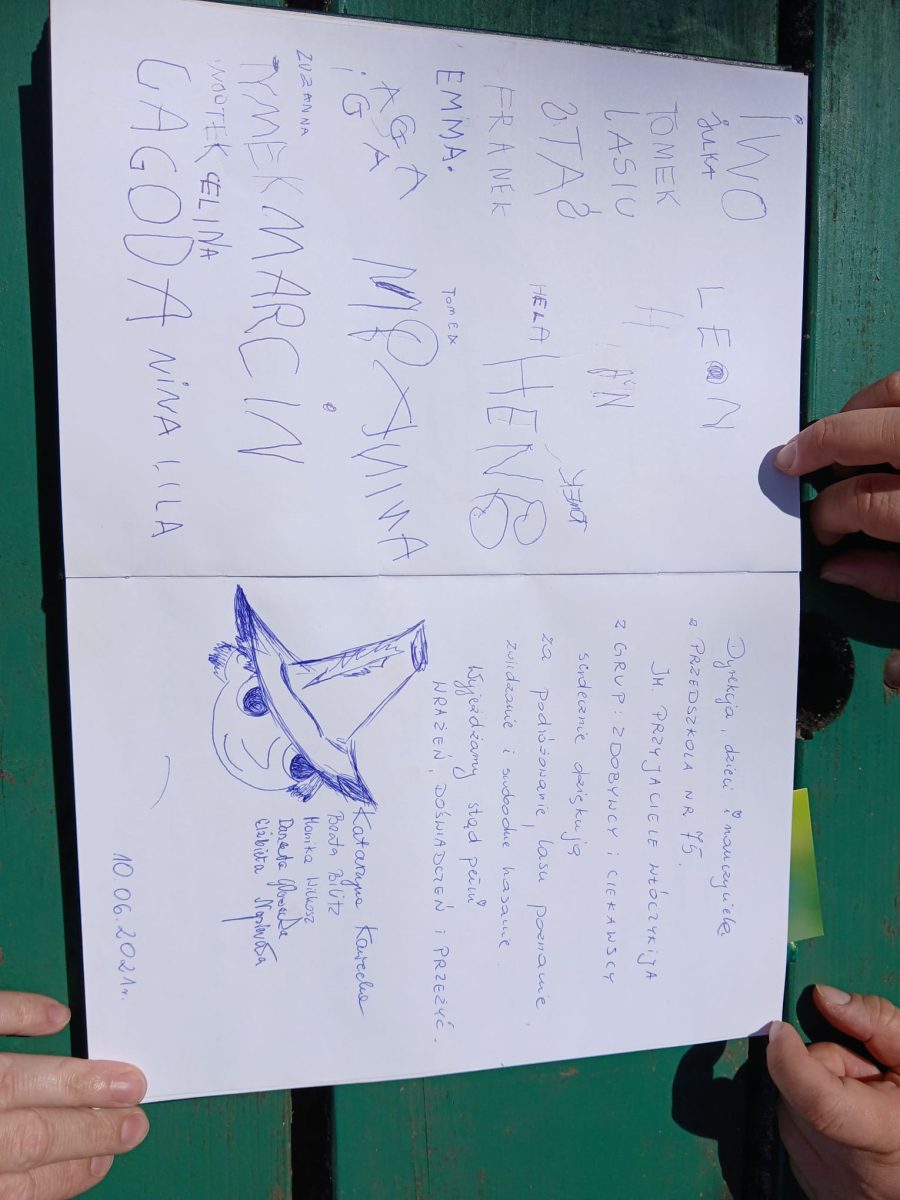 IWO
JULKA LEON
TOMEK
FRANEK HELA
EMMA. TOMEK
AGA
IGA
ZUZANNA
TYMEK MARCIN
WOJTEK CELINA
GAGODA NINA LILA
Dyrekcja, dzieci i nauczyciele
z PRZEDSZKOLA NR 75.
IM. PRZYJACIELE WŁÓCZYKIJA
z GRUP: ZDOBYWCY i CIEKAWSCY
serdecznie dziękują
za podróżowanie, lasu poznanie,
zwiedzanie i swobodne hasanie.
Wyjeżdżamy stąd pełni
WRAŻEŃ, DOŚWIADCZEŃ i PRZEŻYĆ.
Katarzyna Kawecka
Beata Bilitz
Monika Wilkosz
Danuta
Elżbieta
10.06.2021r.